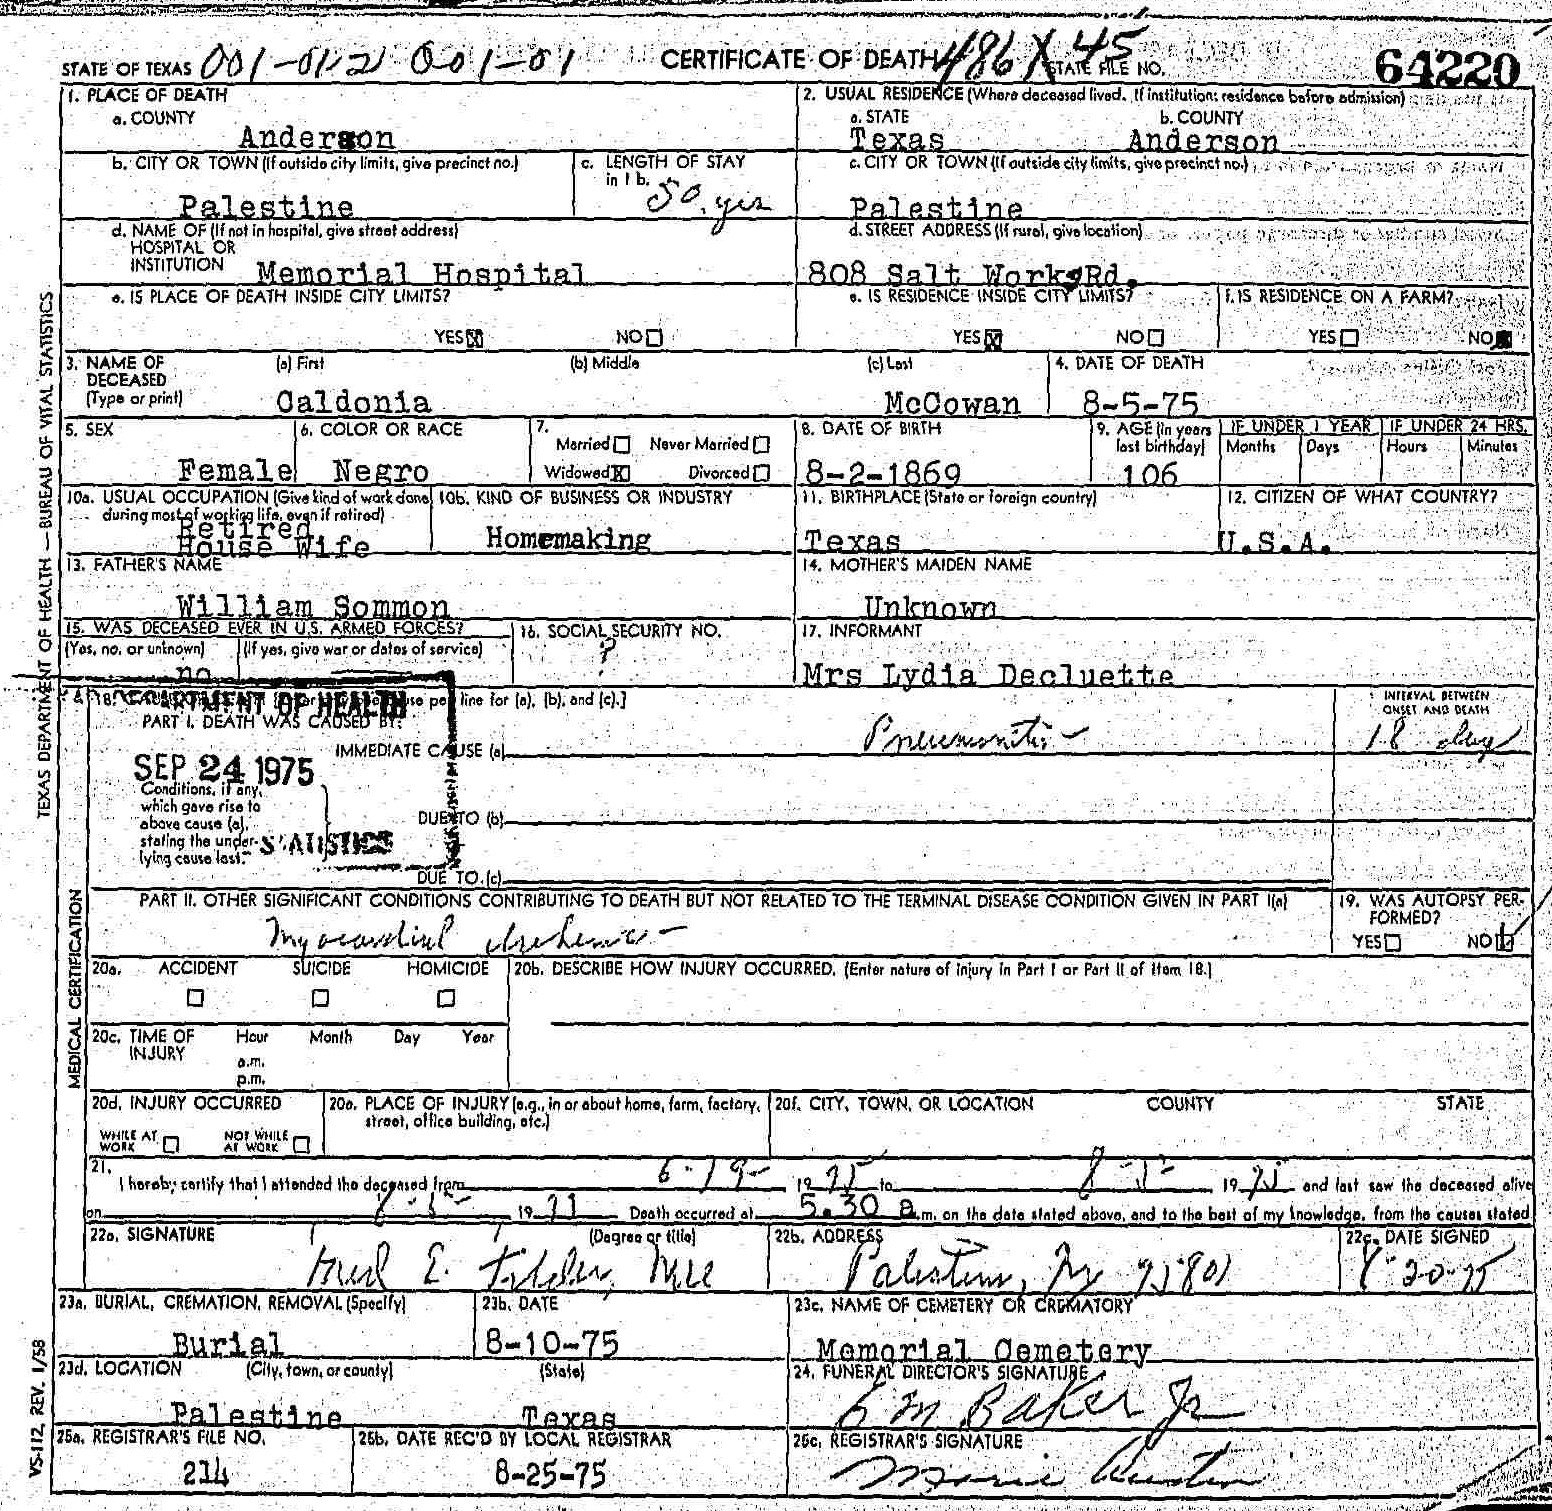 STATE OF TEXAS 001-01-21 001-01 CERTIFICATE OF DEATH 486 X 45 STATE FILE NO. 64220
1. PLACE OF DEATH
a. COUNTY
Anderson
2. USUAL RESIDENCE (Where deceased lived. If institution: residence before admission)
a. STATE b. COUNTY
Texas Anderson
b. CITY OR TOWN (If outside city limits, give precinct no.)
Palestine
c. LENGTH OF STAY
in 1 b.
50 yrs
c. CITY OR TOWN (If outside city limits, give precinct no.)
Palestine
d. NAME OF (If not in hospital, give street address)
HOSPITAL OR
INSTITUTION Memorial Hospital
d. STREET ADDRESS (If rural, give location)
808 Salt Works Rd.
e. IS PLACE OF DEATH INSIDE CITY LIMITS?
YES NO
e. IS RESIDENCE INSIDE CITY LIMITS?
YES NO
f. IS RESIDENCE ON A FARM?
YES NO
3. NAME OF (a) First (b) Middle (c) Last
DECEASED
(Type or print) Caldonia McCowan
4. DATE OF DEATH
8-5-75
5. SEX
Female
6. COLOR OR RACE
Negro
7.
Married Never Married
Widowed Divorced
8. DATE OF BIRTH
8-2-1869
9. AGE (in years
last birthday)
106
IF UNDER 1 YEAR IF UNDER 24 HRS.
Months Days Hours Minutes
10a. USUAL OCCUPATION (Give kind of work done
during most of working life, even if retired)
Retired
House Wife
10b. KIND OF BUSINESS OR INDUSTRY
Homemaking
11. BIRTHPLACE (State or foreign country)
Texas
12. CITIZEN OF WHAT COUNTRY?
U.S.A.
13. FATHER'S NAME
William Sommon
14. MOTHER'S MAIDEN NAME
Unknown
15. WAS DECEASED EVER IN U.S. ARMED FORCES?
(Yes, no, or unknown) (If yes, give war or dates of service)
no
16. SOCIAL SECURITY NO.
?
17. INFORMANT
Mrs Lydia Decluette
18. line for (a), (b), and (c).]
DEPARTMENT OF HEALTH
PART I. DEATH WAS CAUSED BY:
IMMEDIATE CAUSE (a) Pneumonitis
INTERVAL BETWEEN
ONSET AND DEATH
18 day
SEP 24 1975
Conditions, if any,
which gave rise to
above cause (a),
stating the under-
lying cause last.
STATISTICS
DUE TO (b)
DUE TO (c)
PART II. OTHER SIGNIFICANT CONDITIONS CONTRIBUTING TO DEATH BUT NOT RELATED TO THE TERMINAL DISEASE CONDITION GIVEN IN PART I(a)
Myocardial ischemia
19. WAS AUTOPSY PER-
FORMED?
YES NO
20a. ACCIDENT SUICIDE HOMICIDE
20b. DESCRIBE HOW INJURY OCCURRED. (Enter nature of injury in Part I or Part II of item 18.)
20c. TIME OF Hour Month Day Year
INJURY
a.m.
p.m.
20d. INJURY OCCURRED
WHILE AT
WORK
NOT WHILE
AT WORK
20e. PLACE OF INJURY (e.g., in or about home, farm, factory,
street, office building, etc.)
20f. CITY, TOWN, OR LOCATION COUNTY STATE
21.
I hereby certify that I attended the deceased from 6-19- 1975 to 8-5- 1975 and last saw the deceased alive
on 8-5- 19 Death occurred at 5:30 a.m. on the date stated above, and to the best of my knowledge, from the causes stated
22a. SIGNATURE (Degree or title)
Fred E.
22b. ADDRESS
Palestine, 75801
22c. DATE SIGNED
8-20-75
23a. BURIAL, CREMATION, REMOVAL (Specify)
Burial
23b. DATE
8-10-75
23c. NAME OF CEMETERY OR CREMATORY
Memorial Cemetery
23d. LOCATION (City, town, or county) (State)
Palestine Texas
24. FUNERAL DIRECTOR'S SIGNATURE
E M Baker Jr
25a. REGISTRAR'S FILE NO.
214
25b. DATE REC'D BY LOCAL REGISTRAR
8-25-75
25c. REGISTRAR'S SIGNATURE
Marie Austin
TEXAS DEPARTMENT OF HEALTH — BUREAU OF VITAL STATISTICS
MEDICAL CERTIFICATION
VS-112, REV. 1/58